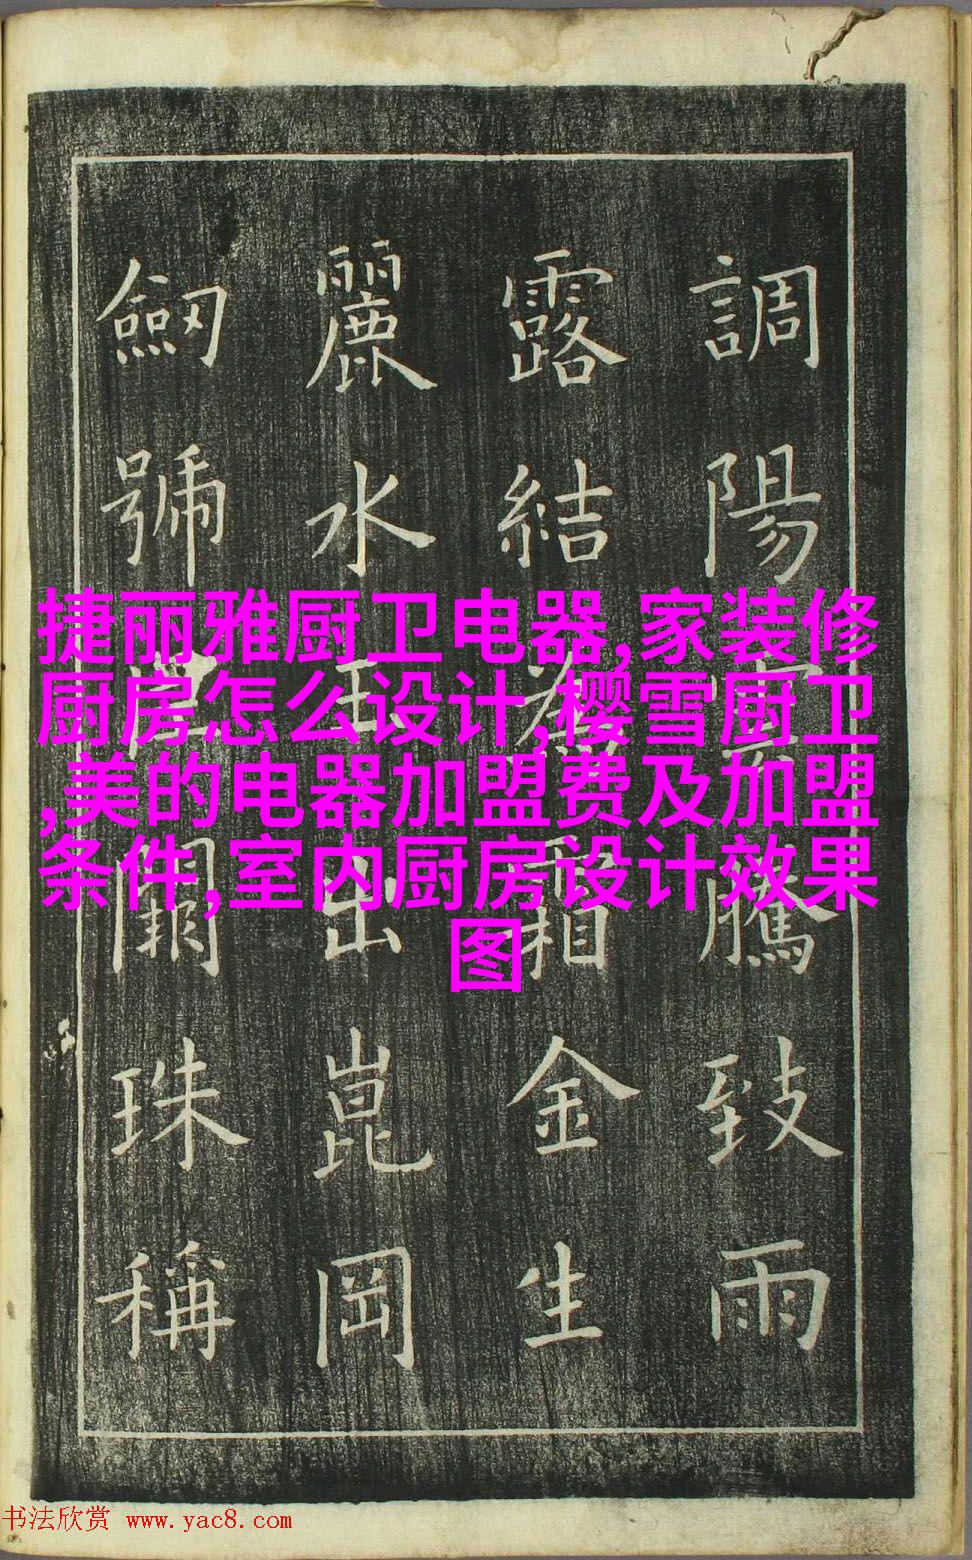 調陽雲騰致雨
露結為霜金生
麗水玉出崑岡
劒號巨闕珠稱
捷丽雅厨卫电器,家装修
厨房怎么设计,樱雪厨卫
,美的电器加盟费及加盟
条件,室内厨房设计效果
图
书法欣赏 www.yac8.com